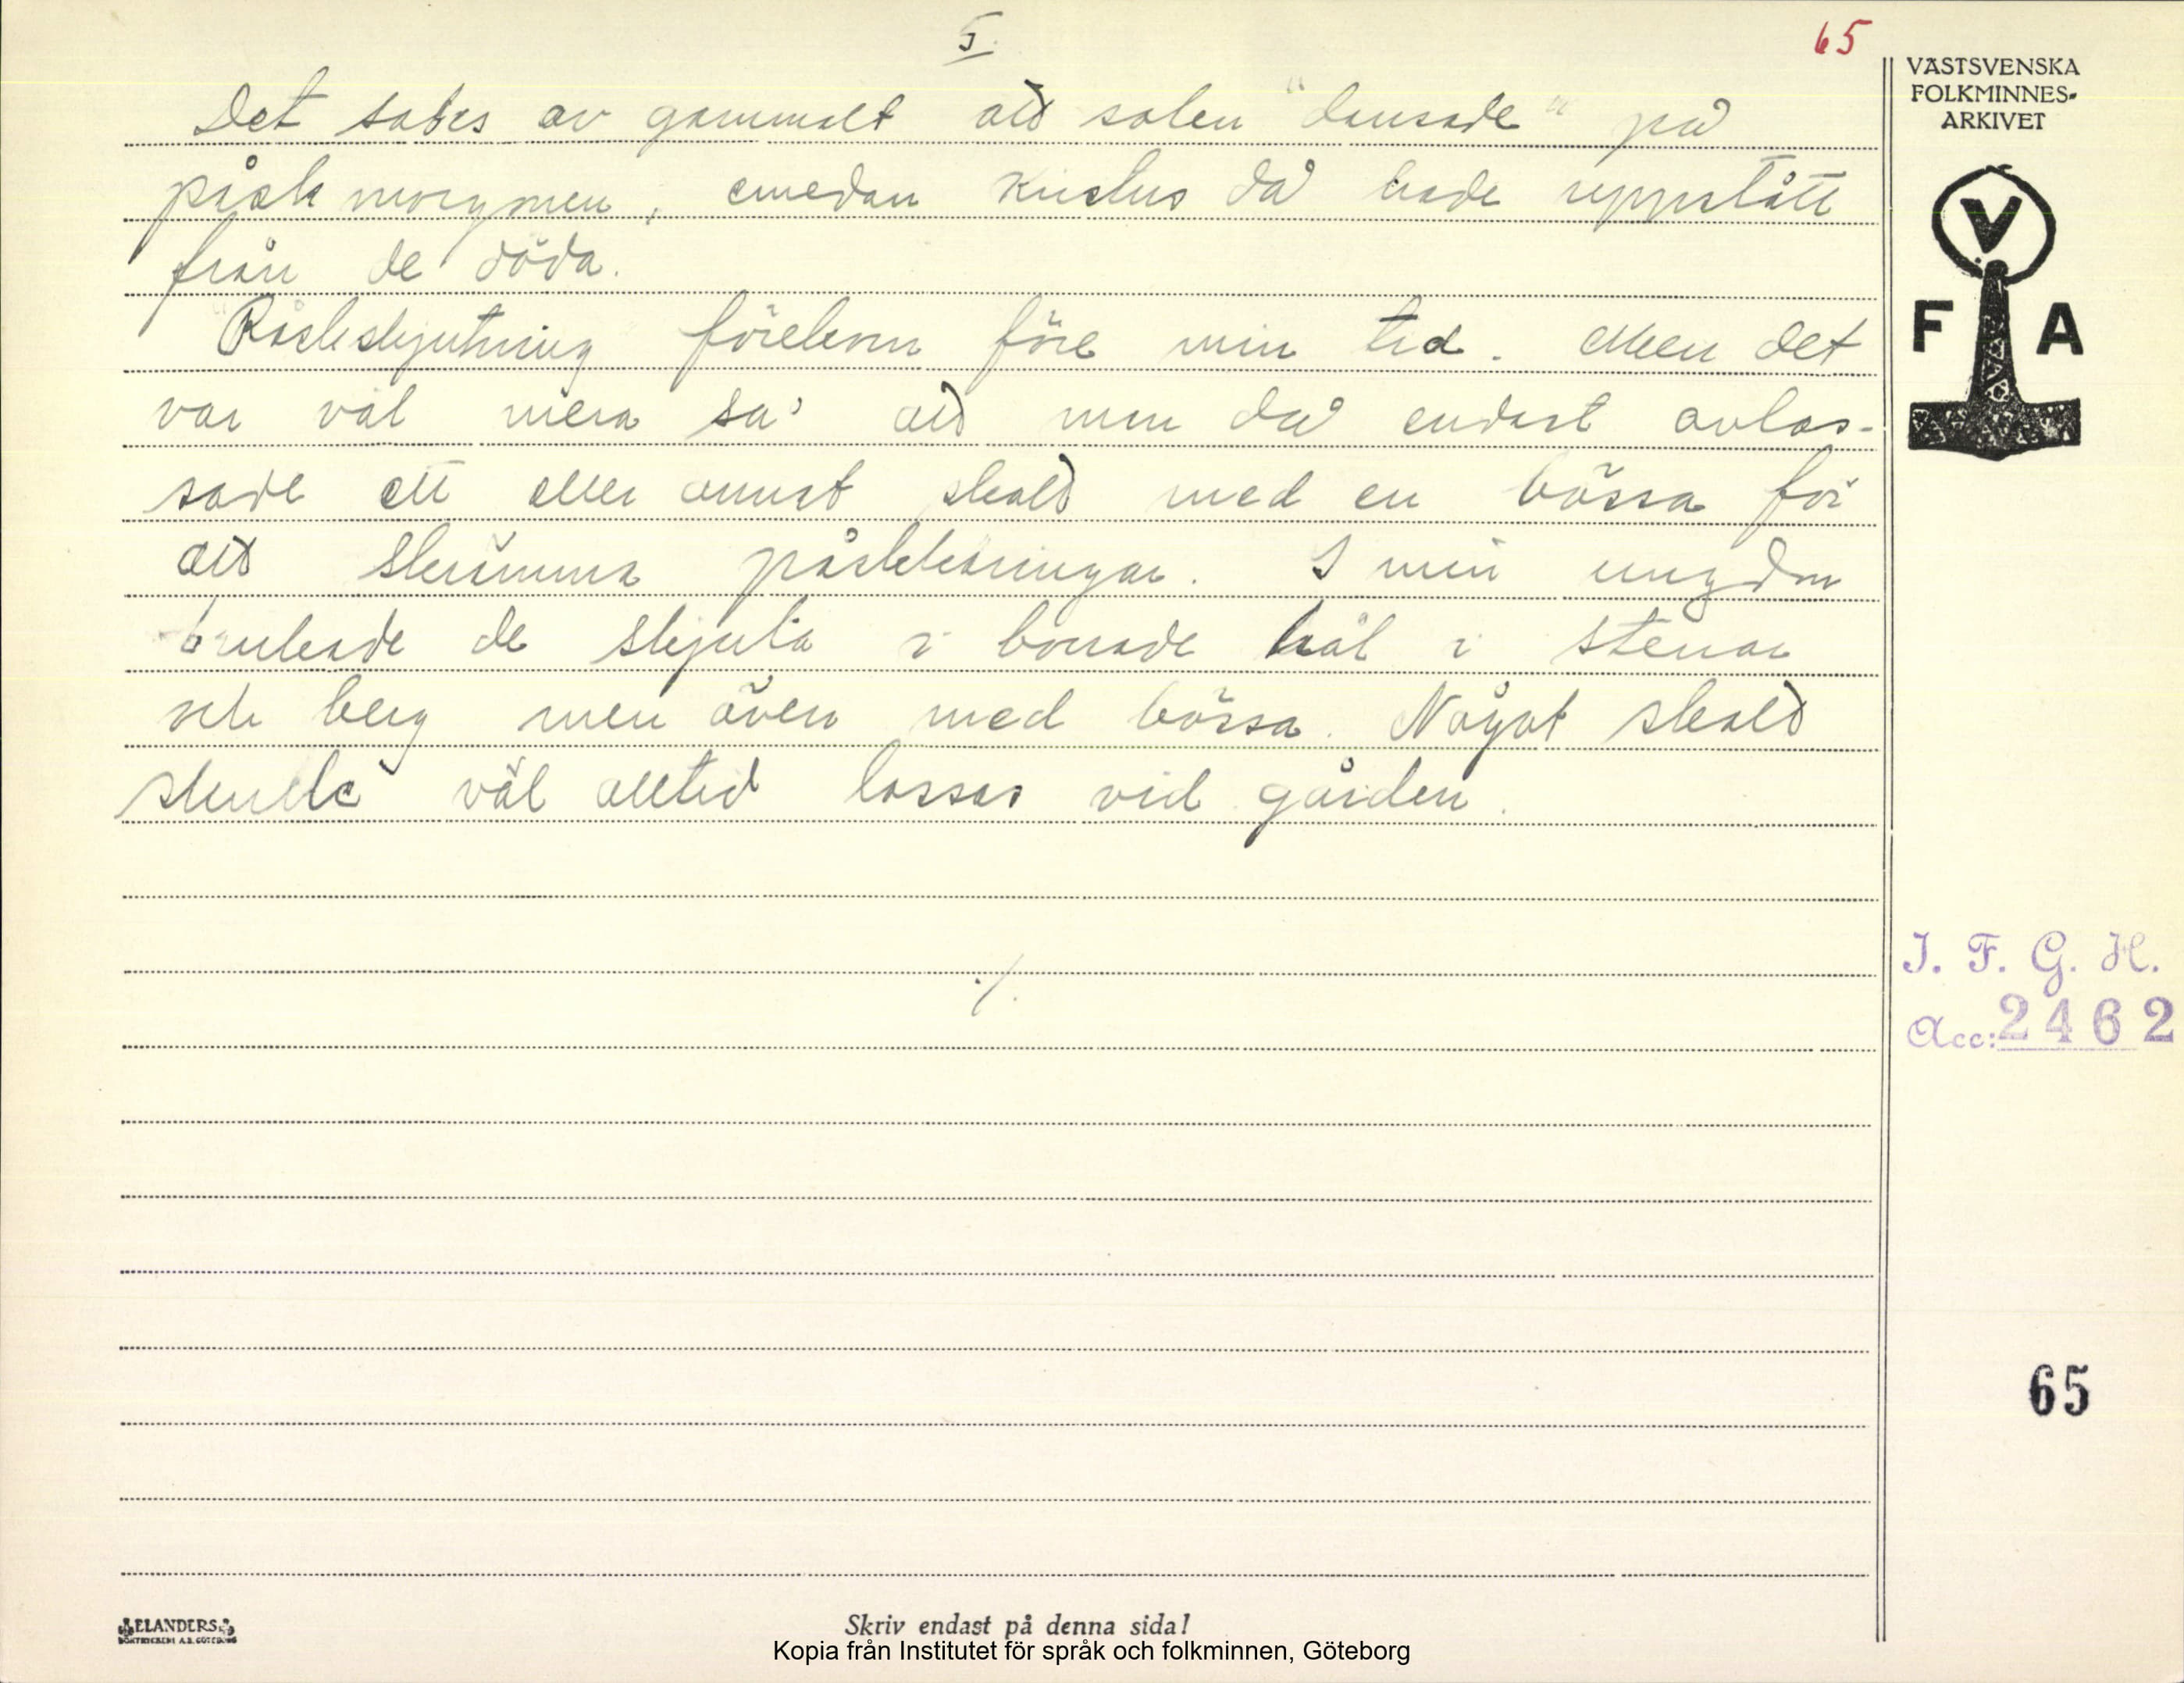 5.
65
Det sades av gammalt att solen "dansade" på
påskmorgonen, emedan Kristus då hade uppstått
från de döda.
Påskskjutning förekom före min tid. Men det
var väl mera så att man då endast avlos-
sade ett eller annat skott med en bössa för
att skrämma påskkäringar. I min ungdom
brukade de skjuta i borrade hål i stenar
och berg men även med bössa. Något skott
skulle väl alltid lossas vid gården.
./.
VÄSTSVENSKA
FOLKMINNES-
ARKIVET
V
F A
I. F. G. H.
Acc: 2462
65
ELANDERS
BOKTRYCKERI A.B. GÖTEBORG
Skriv endast på denna sida!
Kopia från Institutet för språk och folkminnen, Göteborg